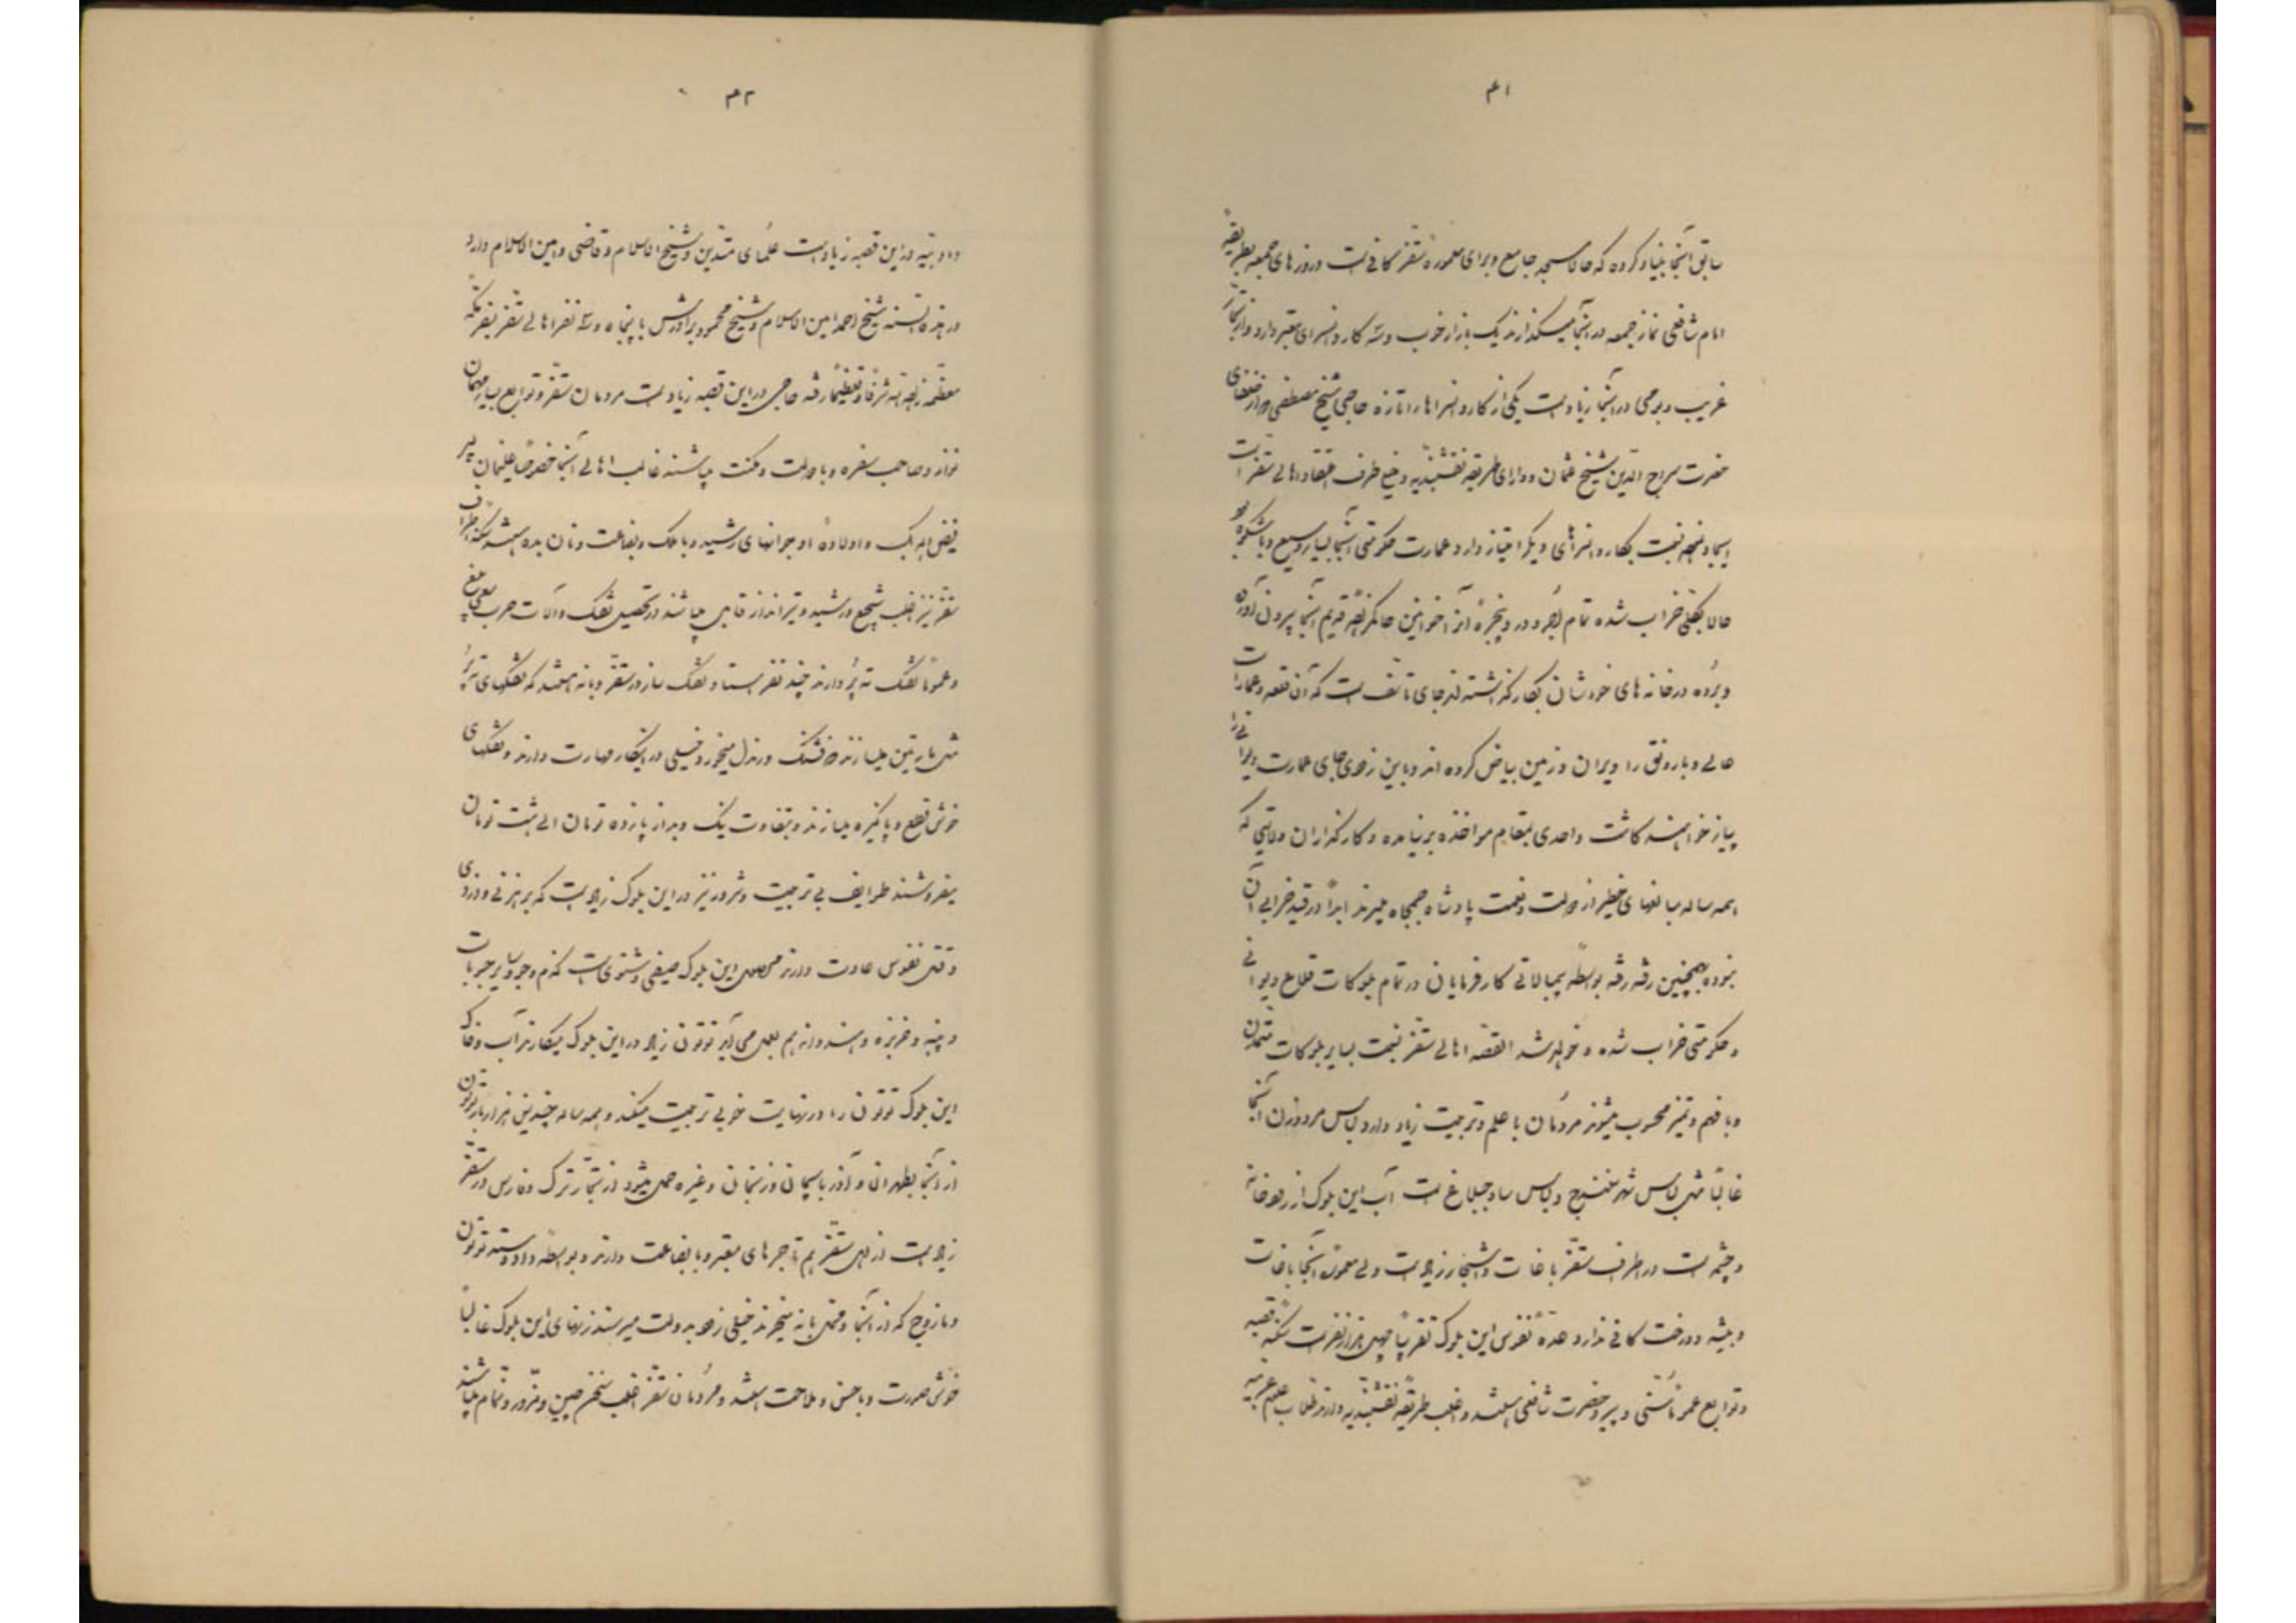 ۴۱
سابق آنجا بنیاد کرده که حالا مسجد جامع و برای معموره سقز کافی است و روزهای جمعه بطریقه
امام شافعی نماز جمعه در آنجا میگذارند یک بازار خوب و سه کاروانسرای معتبر دارد و تجار
غریب و بومی در آنجا زیاد است یکی از کاروانسراها را تازه حاجی شیخ مصطفی از خلفای
حضرت سراج الدین شیخ عثمان و دارای طریقه نقشبندیه و خیلی طرف اعتقاد اهالی سقز است
ایجاد نموده نسبت بکاروانسراهای دیگر امتیاز دارد عمارت حکومتی آنجا بسیار وسیع و باشکوه بود
حالا بکلی خراب شده تمام آجر و در و پنجره آنرا خوانین حاکم زاده قدیم آنجا بیرون آورده
و برده در خانه های خودشان بکار گذاشته اند جای تأسف است که آن قلعه و عمارات
عالی و بارونق را ویران و زمین بیاض کرده اند و باین زودی جای عمارت دیوانی را
پیاز خواهند کاشت و احدی بمقام مواخذه برنیامده و کارگذاران ولایتی که
همه ساله مبالغهای خطیر از دولت و نعمت پادشاه جمجاه میبرند ابداً در قید خرابی آن
نبوده همچنین رفته رفته بواسطه بیمبالاتی کارفرمایان در تمام بلوکات قلاع دیوانی
و حکومتی خراب شده و خواهد شد القصه اهالی سقز نسبت بسایر بلوکات متمدن
و با فهم و تمیز محسوب میشوند مردمان با علم و تربیت زیاد دارد لباس مرد و زن آنجا
غالباً مثل لباس شهر سنندج و لباس ساوجبلاغ است آب این بلوک از رودخانه
و چشمه است در اطراف سقز باغات و اشجار زیاد است ولی معموره آنجا باغات
و بیشه و درخت کافی ندارد عده نفوس این بلوک تقریباً چهل هزار نفر است سکنه قصبه
و توابع عموماً سنی و پیرو حضرت شافعی هستند و اغلب طریقه نقشبندیه دارند طلاب علوم عربیه
۴۲
و ادبیه در این قصبه زیاد است علمای متدین و شیخ الاسلام و قاضی و امین الاسلام دارد
در هذه السنه شیخ احمد امین الاسلام و شیخ محمود برادرش با پنجاه و سه نفر اهالی سقز بسفر مکه
معظمه زادها الله شرفاً و تعظیماً رفته حاجی در این قصبه زیاد است مردمان سقز و توابع بسیار مهمان
نواز و صاحب سفره و با دولت و مکنت میباشند غالب اهالی آنجا خصوصاً علیخان پسر
فیض اله بک و اولاده او جوانهای رشید و با ملک و بضاعت و نان بده هستند سکنه اطراف
سقز نیز اغلب شجیع و رشید و تیرانداز قابل میباشند در تحصیل تفنگ و آلات حرب سعی بلیغ
و عموماً تفنگ ته پر دارند چند نفر استاد تفنگ ساز در سقز و بانه هستند که تفنگهای ته پر
مثل مارتین میسازند فشنگ ورندل میخورد خیلی در اینکار مهارت دارند و تفنگهای
خوش قطع و پاکیزه میسازند و بتفاوت نیک و بد از پانزده تومان الی شصت تومان
میفروشند طوایف بی تربیت و شرور نیز در این بلوک زیاد است که براهزنی و دزدی
و قتل نفوس عادت دارند محصول این بلوک صیفی و شتوی است گندم و جو و سایر حبوبات
و پنبه و خربزه و هندوانه هم بعمل می آید توتون زیاد در این بلوک میکارند آب و خاک
این بلوک توتون را در نهایت خوبی تربیت میکند و همه ساله چندین هزار بار توتون
از آنجا بطهران و آذربایجان و زنجان و غیره حمل میشود از تجار ترک و فارس در سقز
زیاد است از اهل سقز هم تاجرهای معتبر و با بضاعت دارند و بواسطه داد و ستد توتون
و مازوج که از آنجا و محال بانه میخرند خیلی زود بدولت میرسند زنهای این بلوک غالباً
خوش صورت و باحسن و ملاحت هستند و مردمان سقز اغلب سخن چین و مزور و نمام میباشند